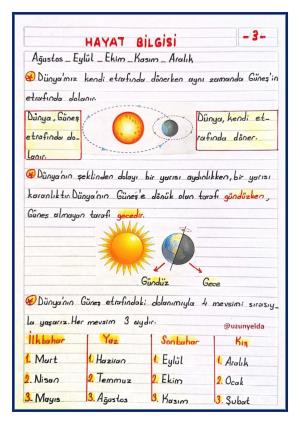 HAYAT BİLGİSİ
-3-
Ağustos_Eylül_Ekim_Kasım_Aralık
Dünya'mız kendi etrafında dönerken aynı zamanda Güneş'in
etrafında dolanır.
Dünya, Güneş
etrafında do-
lanır.
Dünya, kendi et-
rafında döner.
Dünya'nın şeklinden dolayı bir yarısı aydınlıkken, bir yarısı
karanlıktır. Dünya'nın Güneş'e dönük olan tarafı gündüzken,
Güneş almayan tarafı gecedir.
Gündüz
Gece
Dünya'nın Güneş etrafındaki dolanımıyla 4 mevsimi sırasıy-
la yaşarız. Her mevsim 3 aydır.
@uzunyelda
İlkbahar Yaz Sonbahar Kış
1. Mart 1. Haziran 1. Eylül 1. Aralık
2. Nisan 2. Temmuz 2. Ekim 2. Ocak
3. Mayıs 3. Ağustos 3. Kasım 3. Şubat